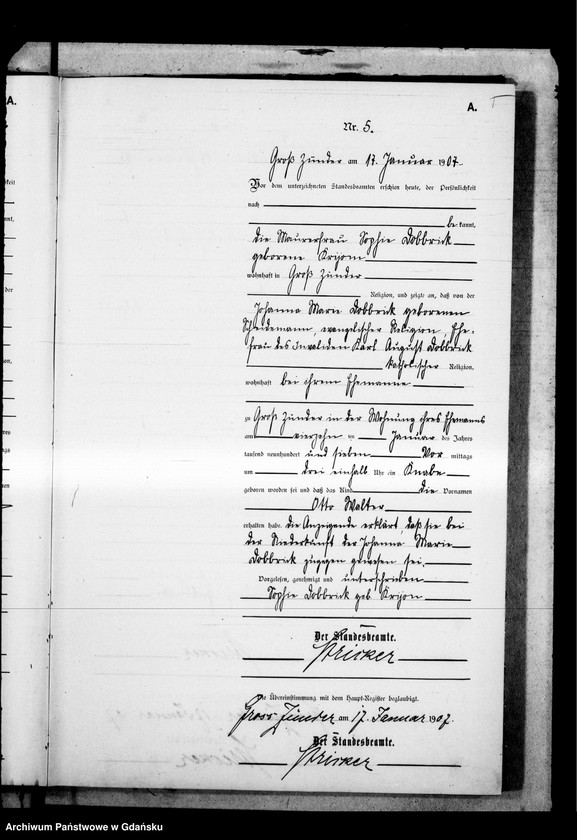 A.
A.
Nr. 5.
Groß Zünder am 17. Januar 1907.
Vor dem unterzeichneten Standesbeamten erschien heute, der Persönlichkeit
nach
be kannt,
die Maurerfrau Sophie Dobbrick
geborene Krijom
wohnhaft in Groß Zünder
Religion, und zeigte an, daß von der
Johanna Marie Dobbrick geborenen
evangelischer Religion, Ehe-
frau des Invaliden Karl August Dobbrick
katholischer Religion,
wohnhaft bei ihrem Ehemanne
zu Groß Zünder in der Wohnung ihres Ehemanns
am vierzehn ten Januar des Jahres
tausend neunhundert und sieben Vor mittags
um drei einhalb Uhr ein Knabe
geboren worden sei und daß das Kind die Vornamen
Otto Walter
erhalten habe. die Anzeigende erklärt, daß sie bei
der Niederkunft der Johanna Marie
Dobbrick zugegen gewesen sei.
Vorgelesen, genehmigt und unterschrieben
Sophie Dobbrick geb. Krijom
Der Standesbeamte.
Stricker
Die Übereinstimmung mit dem Haupt-Register beglaubigt.
Gross Zünder am 17. Januar 1907.
Der Standesbeamte.
Stricker
Archiwum Państwowe w Gdańsku